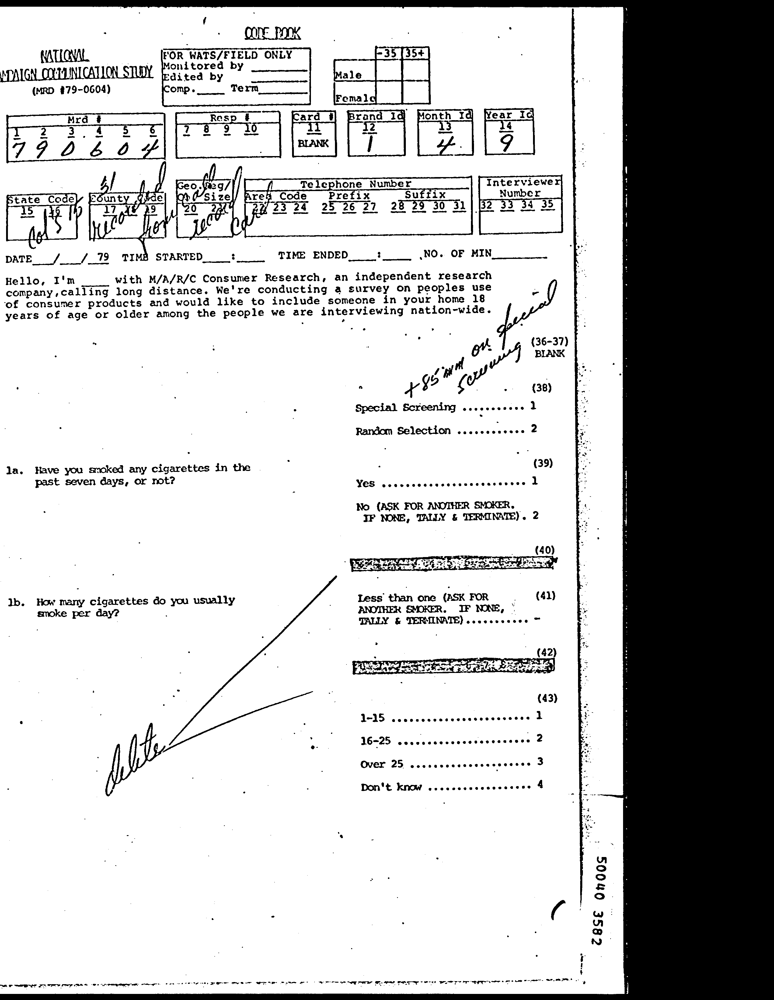 CODE BOOK
NATIONAL
COMMUNICATION STUDY
(MRD #79-0604)
FOR WATS/FIELD ONLY
Monitored by
Edited by
Comp. Term
-35 35+
Male
Female
Mrd #
1 2 3 4 5 6
7 9 0 6 0 4
Resp #
7 8 9 10
Card #
11
BLANK
Brand Id
12
1
Month Id
13
4
Year Id
14
9
State Code
15 16
County Code
17 18 19
Geo.Reg/
Size
20 21
Telephone Number
Area Code Prefix Suffix
22 23 24 25 26 27 28 29 30 31
Interviewer
Number
32 33 34 35
recorded from call record Card
DATE / / 79 TIME STARTED : TIME ENDED : NO. OF MIN
Hello, I'm ____ with M/A/R/C Consumer Research, an independent research
company,calling long distance. We're conducting a survey on peoples use
of consumer products and would like to include someone in your home 18
years of age or older among the people we are interviewing nation-wide.
on special
Screening
(36-37)
BLANK
(38)
Special Screening ........... 1
Random Selection ............ 2
1a. Have you smoked any cigarettes in the
past seven days, or not?
(39)
Yes ......................... 1
No (ASK FOR ANOTHER SMOKER.
IF NONE, TALLY & TERMINATE). 2
(40)
1b. How many cigarettes do you usually
smoke per day?
Less than one (ASK FOR (41)
ANOTHER SMOKER. IF NONE,
TALLY & TERMINATE)........... -
(42)
(43)
1-15 ........................ 1
16-25 ....................... 2
Over 25 ..................... 3
Don't know .................. 4
delete
50040 3582